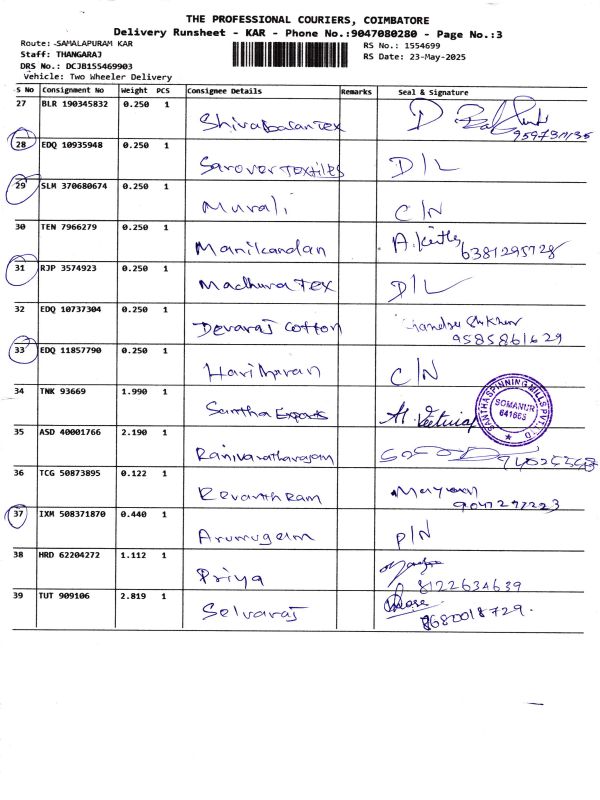 THE PROFESSIONAL COURIERS, COIMBATORE
Delivery Runsheet - KAR - Phone No.:9047080280 - Page No.:3
Route: -SAMALAPURAM KAR
RS No.: 1554699
Staff: THANGARAJ
RS Date: 23-May-2025
DRS No.: DCJB155469903
Vehicle: Two Wheeler Delivery
S No Consignment No Weight PCS Consignee Details Remarks Seal & Signature
27 BLR 190345832 0.250 1 Shivabalan Tex D
28 EDQ 10935948 0.250 1 Sarover Textiles D/L
29 SLM 370680674 0.250 1 Murali C/N
30 TEN 7966279 0.250 1 Manikandan 6381295728
31 RJP 3574923 0.250 1 Madhura Tex D/L
32 EDQ 10737304 0.250 1 Devaraj Cotton 9585861629
33 EDQ 11857790 0.250 1 Hariharan C/N
34 TNK 93669 1.990 1 Santha Exports
SANTHA SPINNING MILLS PVT. LTD
SOMANUR
641668
35 ASD 40001766 2.190 1
36 TCG 50873895 0.122 1 Revanth Ram
9047277223
37 IXM 508371870 0.440 1 Arumugam P/N
38 HRD 62204272 1.112 1 Priya
8122634639
39 TUT 909106 2.819 1 Selvaraj
8680018729.